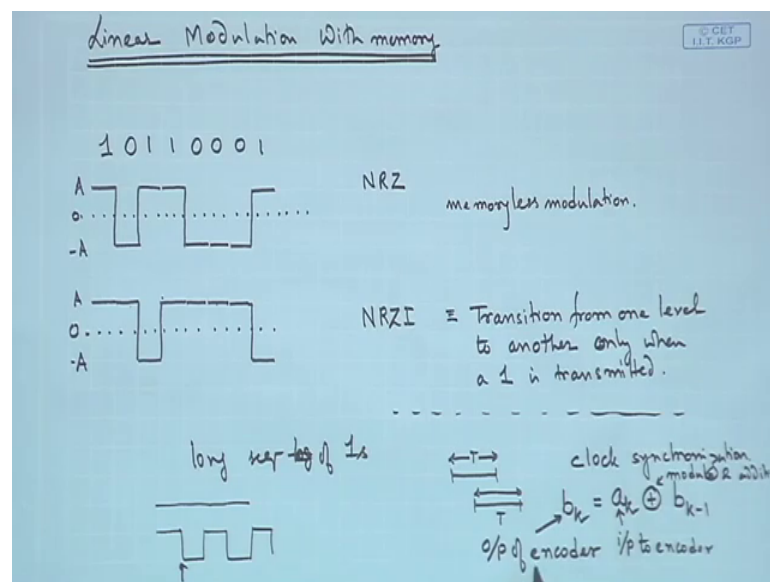 Linear Modulation With memory
© CET
I.I.T. KGP
1 0 1 1 0 0 0 1
A
0
-A
NRZ
memoryless modulation.
A
0
-A
NRZI ≡ Transition from one level
to another only when
a 1 is transmitted.
long of 1s
T
T
clock synchronization
modulo 2
b_k = a_k ⊕ b_{k-1}
o/p of encoder i/p to encoder